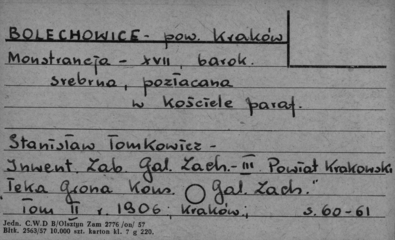 BOLECHOWICE - pow. Kraków
Monstrancja - XVII, barok.
srebrna, pozłacana
w kościele paraf.
Stanisław Tomkowicz -
Inwent. Zab. Gal. Zach. - III Powiat Krakowski
Teka Grona Kons. Gal. Zach."
Tom II r. 1906, Kraków, s. 60-61
Jedn. C.W.D B/Olsztyn Zam 2776 /on/ 57
Bltk. 2563/57 10.000 szt. karton kl. 7 g 220.